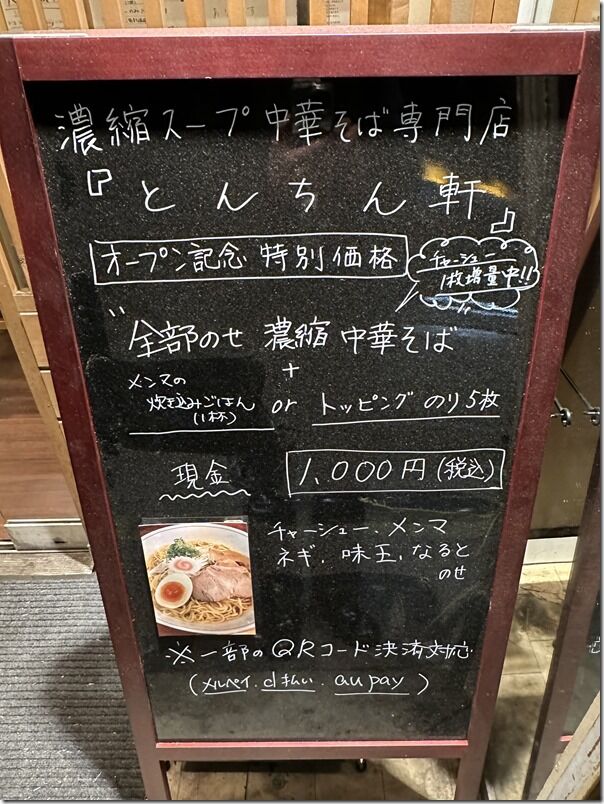 濃縮スープ中華そば専門店
『とんちん軒』
オープン記念 特別価格
チャーシュー
1枚増量中!!
全部のせ 濃縮 中華そば
+
メンマの
炊き込みごはん
(1杯)
or トッピング のり5枚
現金
1,000円(税込)
チャーシュー、メンマ
ネギ、味玉、なると
のせ
※一部のQRコード決済対応
(メルペイ.d払い.aupay)